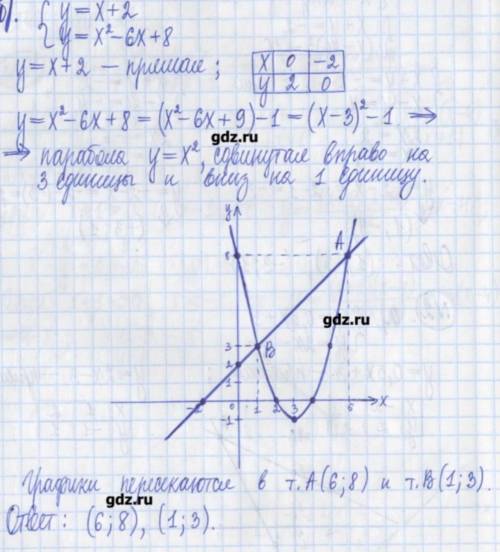 б). { y = x + 2
{ y = x² - 6x + 8
y = x + 2 — прямая;
x 0 -2
y 2 0
y = x² - 6x + 8 = (x² - 6x + 9) - 1 = (x - 3)² - 1 ⇒
гдз.ру
⇒ парабола y = x², сдвинутая вправо на
3 единицы и вниз на 1 единицу.
y
8 A
гдз.ру
3 B
2
1
-2 0 1 2 3 6 x
-1
Графики пересекаются в т. A (6; 8) и т. B (1; 3).
гдз.ру
Ответ: (6; 8), (1; 3).